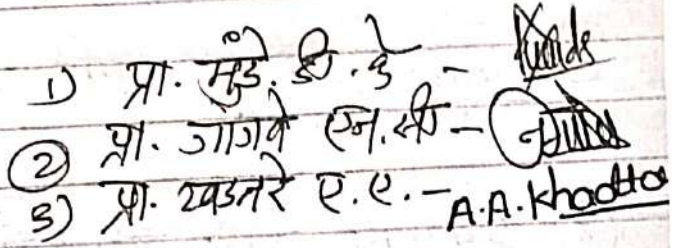 1) प्रा. मुंडे. डी. के -
2 प्रा. जागवे एन. सी -
3) प्रा. खडतरे ए. ए. - A.A. Khadta